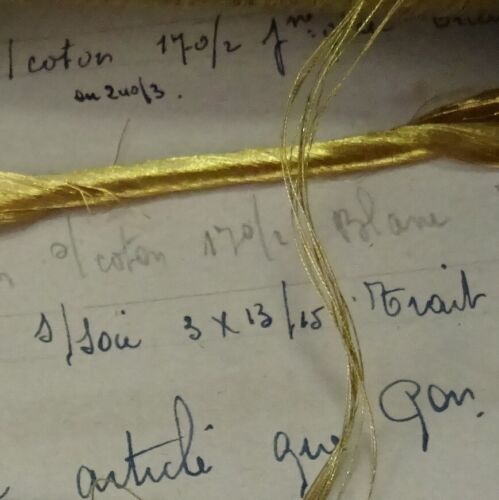 /coton 170/2 fne
ou 240/3.
s/coton 170/2 Blanc
s/Soie 3 x 13/15 Trait
article que Gon